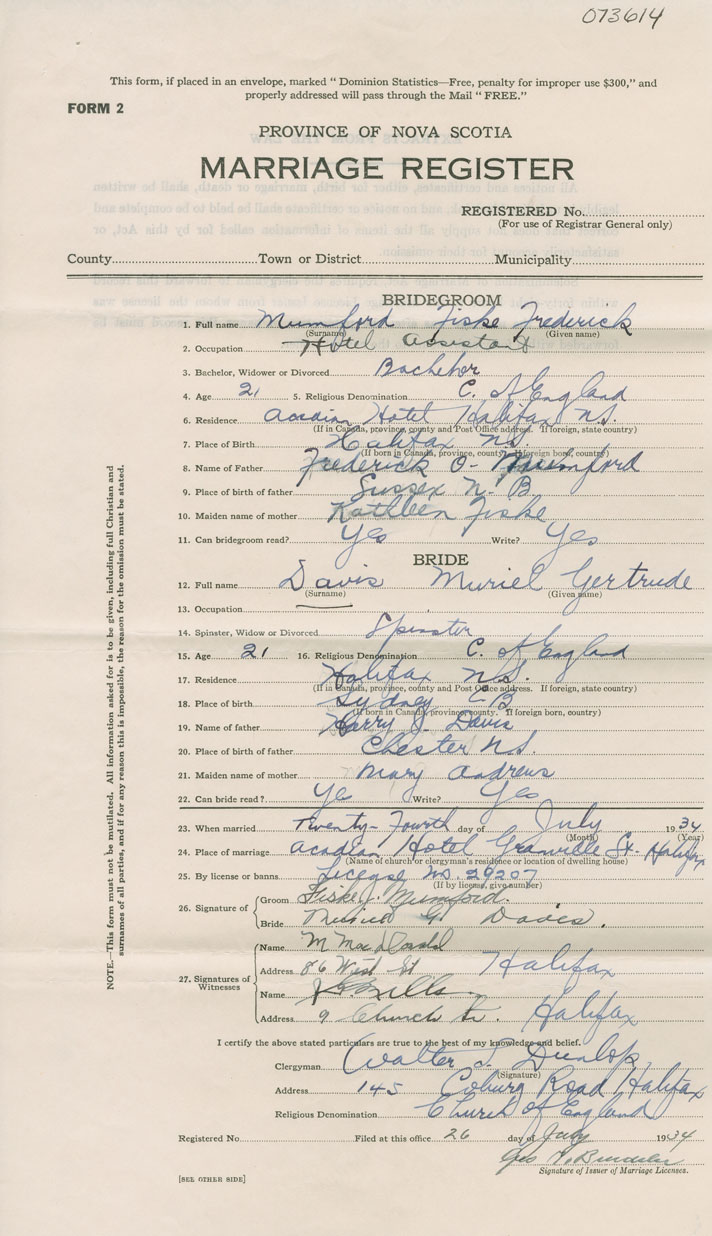 073614
This form, if placed in an envelope, marked " Dominion Statistics—Free, penalty for improper use $300," and
properly addressed will pass through the Mail " FREE."
FORM 2
PROVINCE OF NOVA SCOTIA
MARRIAGE REGISTER
REGISTERED No.
(For use of Registrar General only)
County Town or District Municipality
BRIDEGROOM
1. Full name Mumford Fiske Frederick
(Surname) (Given name)
2. Occupation Hotel Assistant
3. Bachelor, Widower or Divorced Bachelor
4. Age 21 5. Religious Denomination C. of England
6. Residence Acadian Hotel Halifax N.S.
(If in Canada, province, county and Post Office address. If foreign, state country)
7. Place of Birth Halifax N.S.
(If born in Canada, province, county. If foreign born, country)
8. Name of Father Frederick O- Mumford
9. Place of birth of father Sussex N. B
10. Maiden name of mother Kathleen Fiske
11. Can bridegroom read? Yes Write? Yes
BRIDE
12. Full name Davis Muriel Gertrude
(Surname) (Given name)
13. Occupation
14. Spinster, Widow or Divorced Spinster
15. Age 21 16. Religious Denomination C. of England
17. Residence Halifax N.S.
(If in Canada, province, county and Post Office address. If foreign, state country)
18. Place of birth Sydney C-B
(If born in Canada, province, county. If foreign born, country)
19. Name of father Harry J. Davis
20. Place of birth of father Chester N.S.
21. Maiden name of mother Mary Andrews
22. Can bride read? Ye Write? Yes
23. When married Twenty-Fourth day of July 1934
(Month) (Year)
24. Place of marriage Acadian Hotel Granville St. Halifax
(Name of church or clergyman's residence or location of dwelling house)
25. By license or banns License No. 29207
(If by license, give number)
26. Signature of Groom Fiske Mumford.
Bride Muriel G. Davis.
27. Signatures of Witnesses
Name M MacDonald
Address 86 West St Halifax
Name Mills
Address 9 Church St. Halifax
I certify the above stated particulars are true to the best of my knowledge and belief.
Clergyman Walter J. Dunlop
(Signature)
Address 145 Coburg Road Halifax
Religious Denomination Church of England
Registered No. Filed at this office 26 day of July 1934
Geo
Signature of Issuer of Marriage Licenses.
[SEE OTHER SIDE]
NOTE.—This form must not be mutilated. All information asked for is to be given, including full Christian and
surnames of all parties, and if for any reason this is impossible, the reason for the omission must be stated.